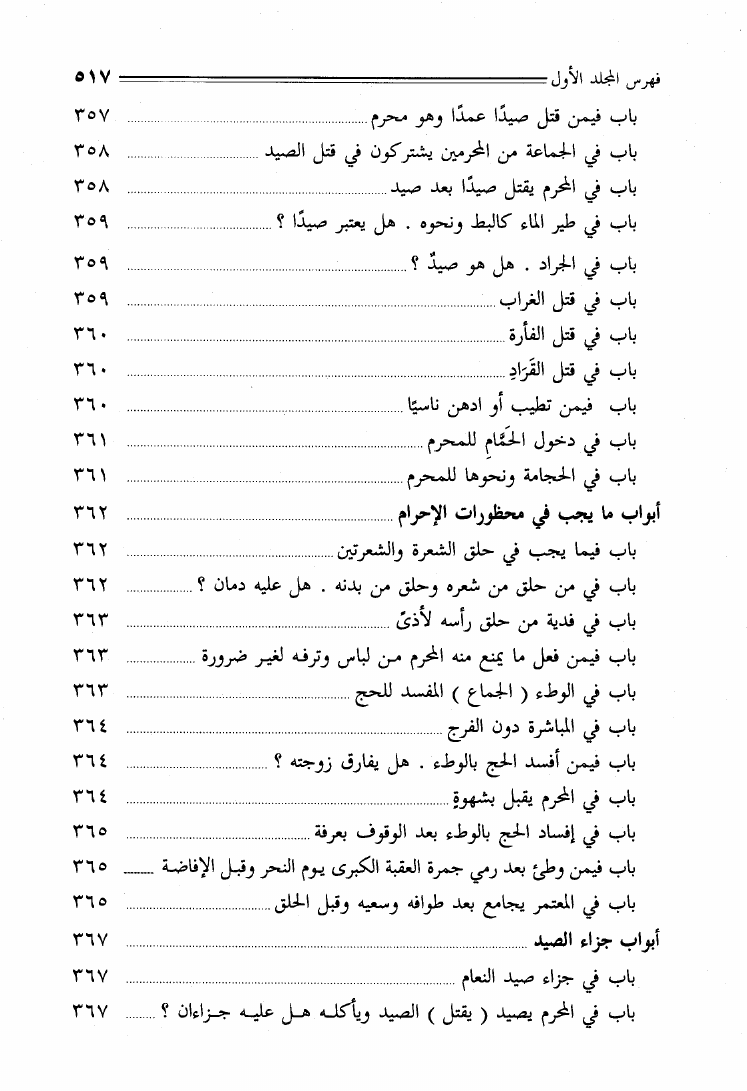 فهرس المجلد الأول ٥١٧
باب فيمن قتل صيدًا عمدًا وهو محرم ٣٥٧
باب في الجماعة من المحرمين يشتركون في قتل الصيد ٣٥٨
باب في المحرم يقتل صيدًا بعد صيد ٣٥٨
باب في طير الماء كالبط ونحوه . هل يعتبر صيدًا ؟ ٣٥٩
باب في الجراد . هل هو صيدٌ ؟ ٣٥٩
باب في قتل الغراب ٣٥٩
باب في قتل الفأرة ٣٦٠
باب في قتل القَرَادِ ٣٦٠
باب فيمن تطيب أو ادهن ناسيًا ٣٦٠
باب في دخول الحَمَّامِ للمحرم ٣٦١
باب في الحجامة ونحوها للمحرم ٣٦١
أبواب ما يجب في محظورات الإحرام ٣٦٢
باب فيما يجب في حلق الشعرة والشعرتين ٣٦٢
باب في من حلق من شعره وحلق من بدنه . هل عليه دمان ؟ ٣٦٢
باب في فدية من حلق رأسه لأذىً ٣٦٣
باب فيمن فعل ما يمنع منه المحرم من لباس وترفه لغير ضرورة ٣٦٣
باب في الوطء ( الجماع ) المفسد للحج ٣٦٣
باب في المباشرة دون الفرج ٣٦٤
باب فيمن أفسد الحج بالوطء . هل يفارق زوجته ؟ ٣٦٤
باب في المحرم يقبل بشهوةٍ ٣٦٤
باب في إفساد الحج بالوطء بعد الوقوف بعرفة ٣٦٥
باب فيمن وطئ بعد رمي جمرة العقبة الكبرى يوم النحر وقبل الإفاضة ٣٦٥
باب في المعتمر يجامع بعد طوافه وسعيه وقبل الحلق ٣٦٥
أبواب جزاء الصيد ٣٦٧
باب في جزاء صيد النعام ٣٦٧
باب في المحرم يصيد ( يقتل ) الصيد ويأكله هل عليه جزاءان ؟ ٣٦٧